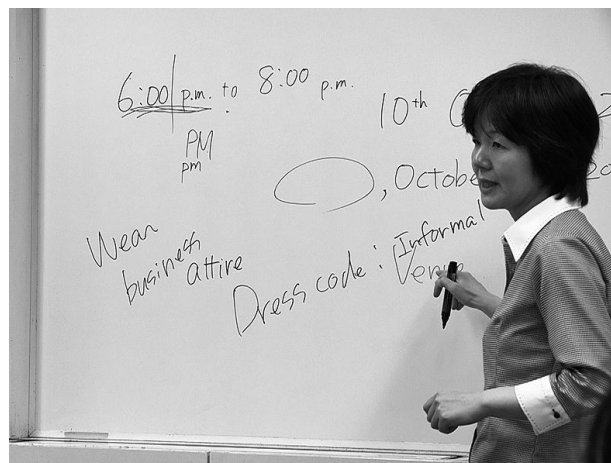 6:00 p.m. to 8:00 p.m.
PM
pm
10th
, October
Wear
business
attire
Dress code : Informal